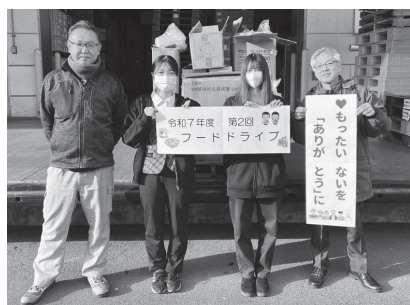 令和7年度 第2回
フードドライブ
♥もったいないを
「ありがとう」に